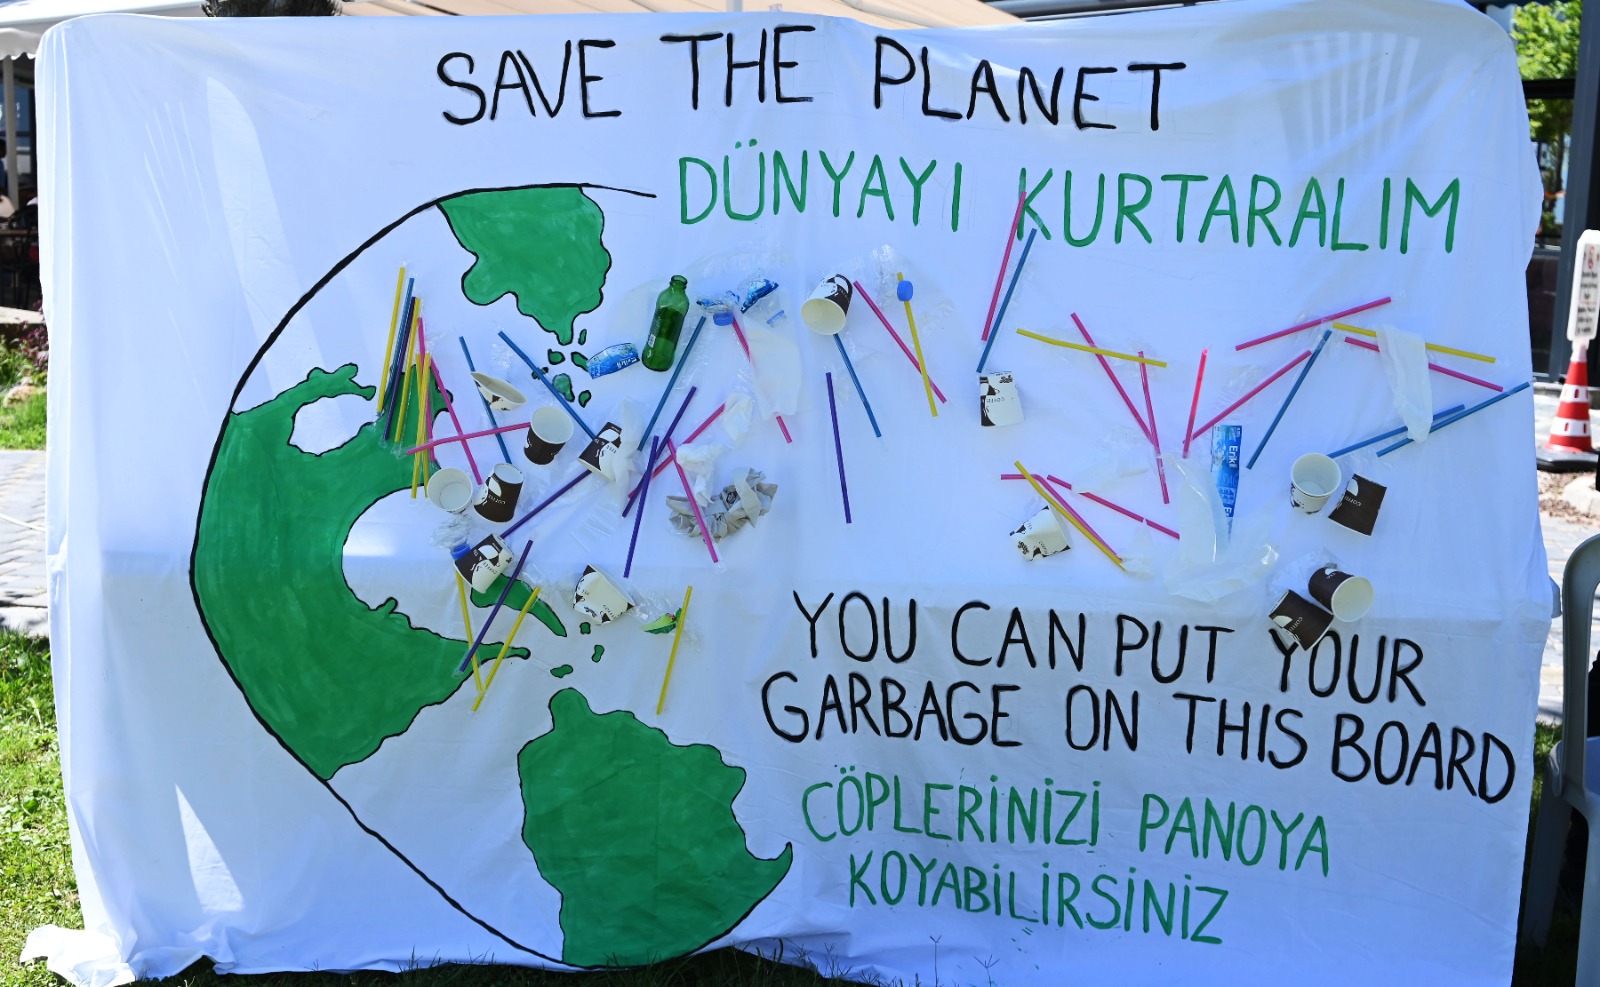 SAVE THE PLANET
DÜNYAYI KURTARALIM
YOU CAN PUT YOUR
GARBAGE ON THIS BOARD
ÇÖPLERİNİZİ PANOYA
KOYABİLİRSİNİZ
Erikli